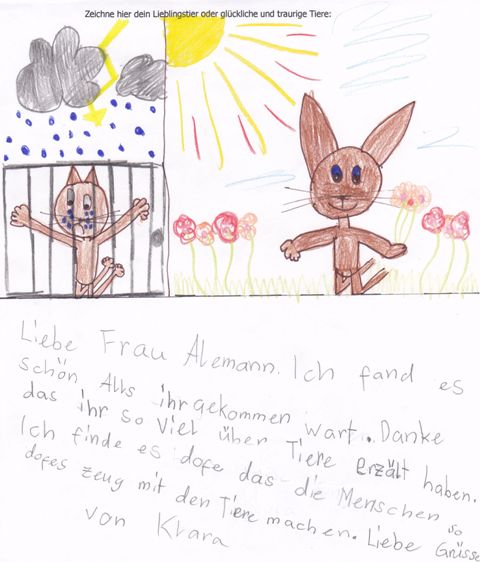 Zeichne hier dein Lieblingstier oder glückliche und traurige Tiere:
Liebe Frau Alemann. Ich fand es
schön Alls ihr gekommen wart. Danke
das ihr so viel über Tiere erzält haben.
Ich finde es dofe das die Menschen so
dofes zeug mit den Tiere machen. Liebe Grüsse
von Klara